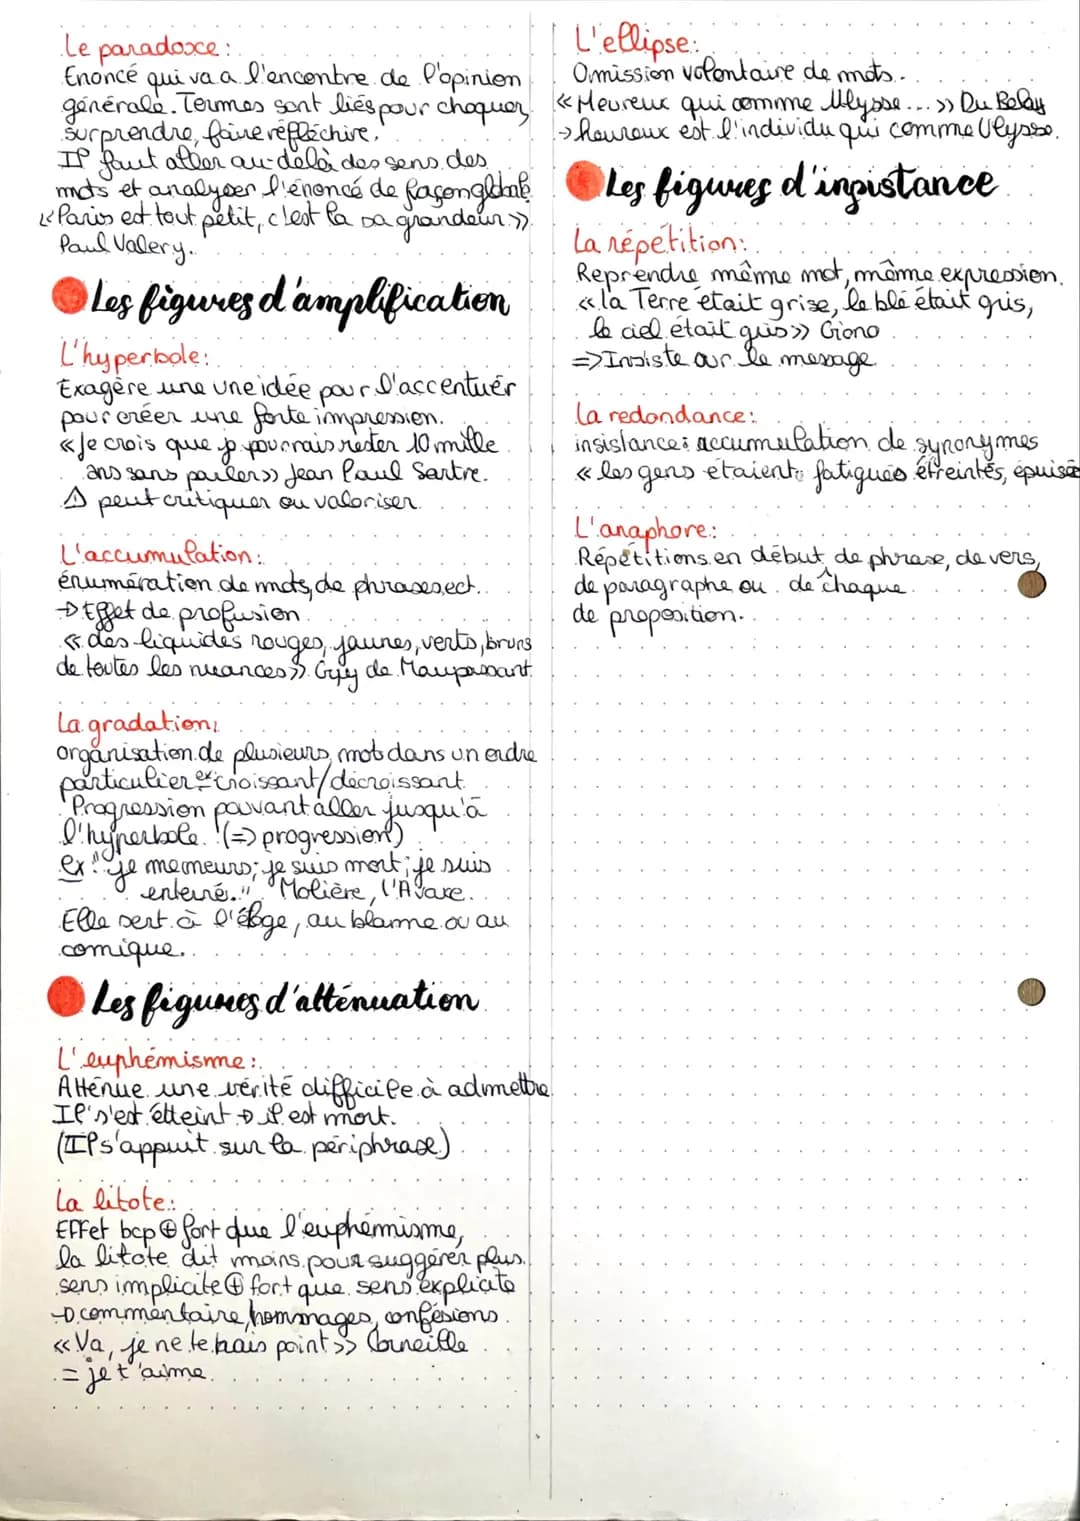 Le paradoxe :
Enoncé qui va a l'encontre de l'opinion
générale. Termes sont liés pour choquer,
surprendre, faire réfléchire.
Il faut aller au-delà des sens des
mots et analyser l'énoncé de façon globale
« Paris est tout petit, c'est la sa grandeur »
Paul Valery.
Les figures d'amplification
L'hyperbole :
Exagère une une idée pour l'accentuér
pour créer une forte impression.
« Je crois que je pourrais rester 10 mille
ans sans parler » Jean Paul Sartre.
⚠ peut critiquer ou valoriser
L'accumulation :
énumération de mots, de phrases ect..
→ Effet de profusion
« des liquides rouges, jaunes, verts, bruns
de toutes les nuances » Guy de Maupassant
La gradation :
organisation de plusieurs mots dans un ordre
particulier ex: croissant/décroissant
Progression pouvant aller jusqu'à
l'hyperbole. (=> progression)
ex: "je me meurs; je suis mort; je suis
enterré." Molière, l'Avare.
Elle sert à l'éloge, au blamme ou au
comique.
Les figures d'atténuation
L'euphémisme :
Atténue une vérité difficile à admettre
Il s'est étteint → il est mort.
(Il s'appuit sur la périphrase)
La litote :
Effet bcp ⊕ fort que l'euphémisme,
la litote dit moins pour suggérer plus.
sens implicite ⊕ fort que sens explicite
→ commentaire, hommages, confésions
« Va, je ne te hais point » Corneille
= je t'aime.
L'ellipse :
Omission volontaire de mots.
« Heureux qui comme Ulysse... » Du Belay
→ heureux est l'individu qui comme Ulysse.
Les figures d'insistance
La répétition :
Reprendre même mot, même expression.
« la Terre était grise, le blé était gris,
le ciel était gris » Giono
=> Insiste sur le message
La redondance :
insistance : accumulation de synonymes
« les gens étaient fatigués éreintés, épuisé
L'anaphore :
Répétitions en début de phrase, de vers,
de paragraphe ou de chaque
de proposition.